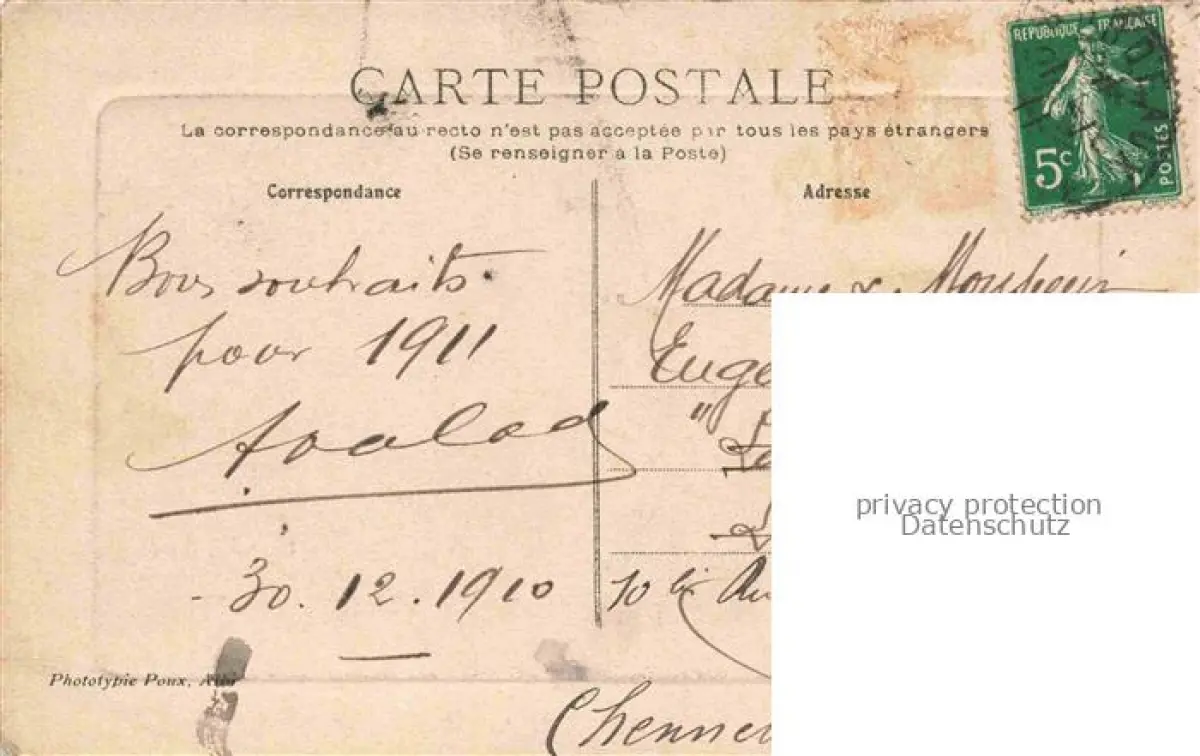 CARTE POSTALE
La correspondance au recto n'est pas acceptée par tous les pays étrangers
(Se renseigner à la Poste)
RÉPUBLIQUE FRANÇAISE
5c
POSTES
Correspondance
Adresse
Bons souhaits
pour 1911
30.12.1910
Madame &
10 bis
Phototypie Poux, Albi
privacy protection
Datenschutz